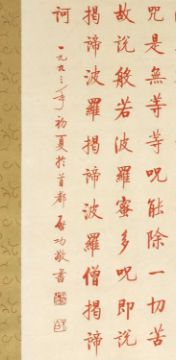 咒是無等等咒能除一切苦
故說般若波羅蜜多咒即說
揭諦波羅揭諦波羅僧揭諦
訶
一九九三年初夏於首都啟功敬書